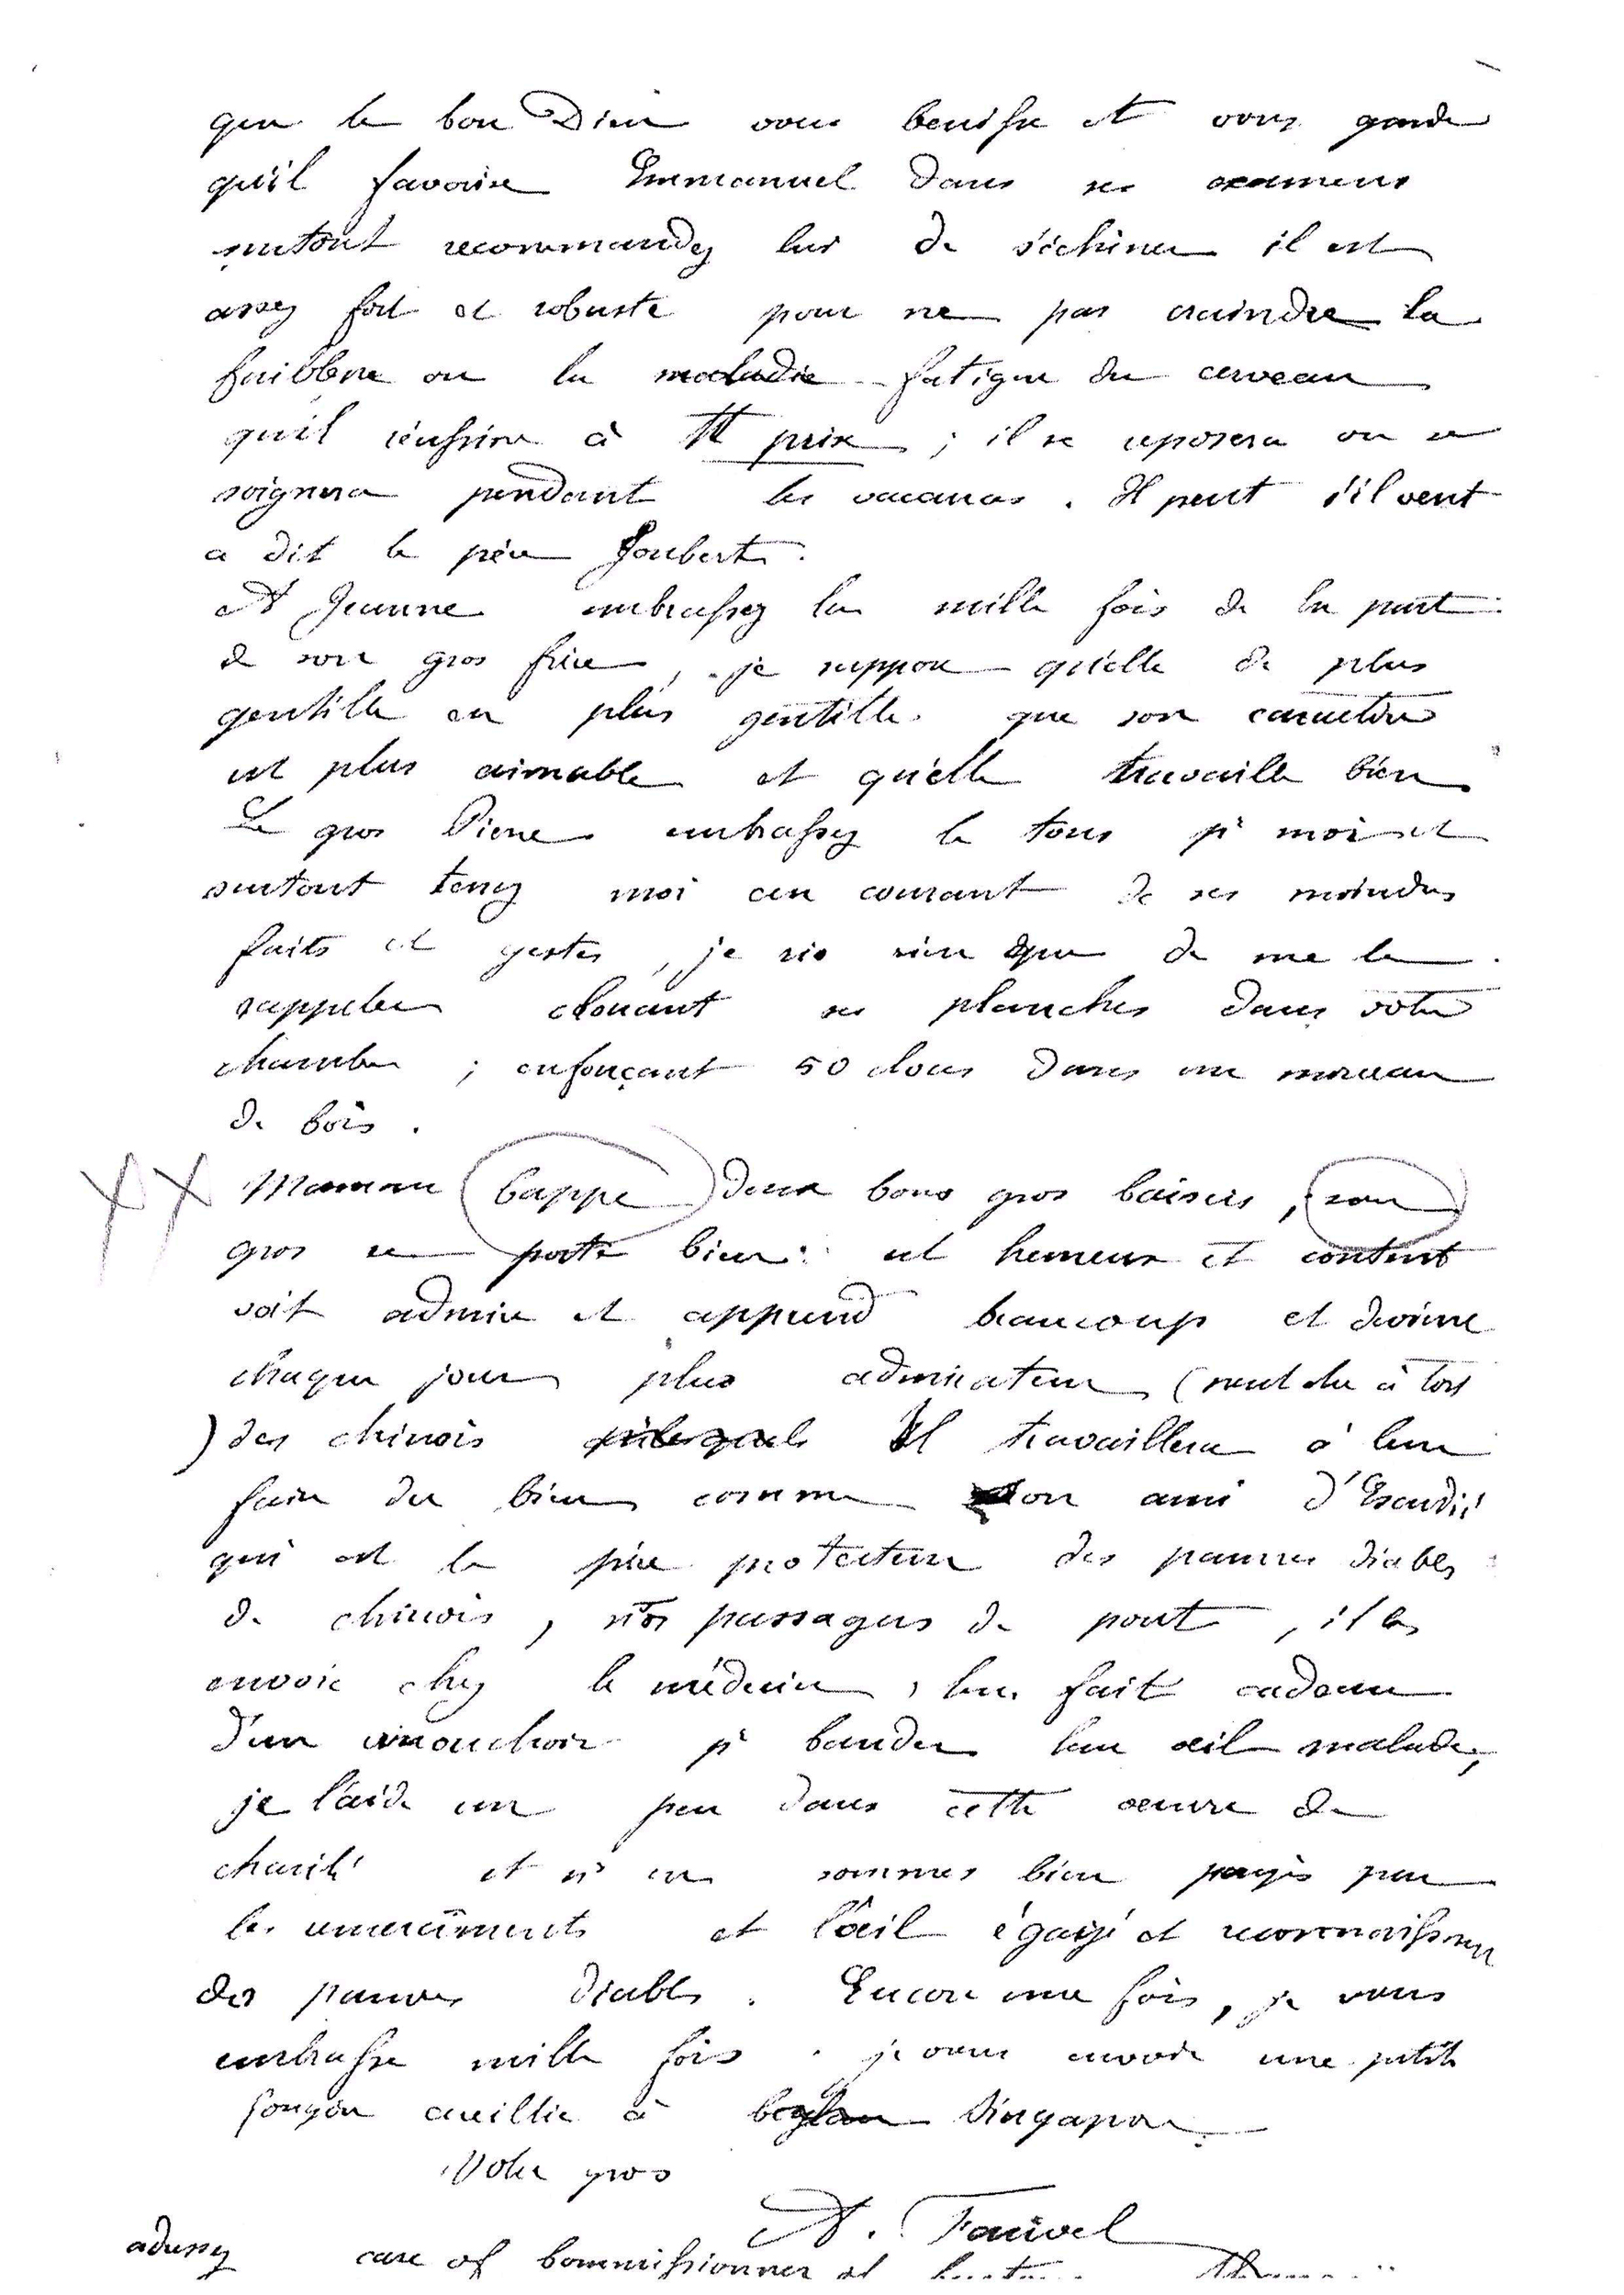 que le bon Dieu vous benisse et vous garde
qu'il favorise Emmanuel dans ses examens
surtout recommandez lui de s'échiner il est
assez fort et robuste pour ne pas craindre la
faiblesse ou la maladie fatigue du cerveau
qu'il réussisse à tt prix ; il se reposera ou se
soignera pendant les vacances . Il peut s'il veut
a dit le père Joubert .
Et Jeanne embrassez la mille fois de la part
de son gros frère , je suppose qu'elle de plus
gentille en plus gentille que son caractère
est plus aimable et qu'elle travaille bien
Le gros Pierre embrassez le tous pr moi et
surtout tenez moi au courant de ses moindres
faits et gestes , je ris rien que de me le
rappeler clouant ses planches dans votre
chambre ; enfonçant 50 clous dans un morceau
de bois .
Maman bappe deux bons gros baisers , son
gros se porte bien est heureux et content
voit admire et apprend beaucoup et devient
chaque jour plus admirateur (
) des chinois Il travaillera à leur
faire du bien comme son ami d'Escudié
qui est le père protecteur des pauvres diables
de chinois , nos passagers de pont , il les
envoie chez le médecin , leur fait cadeau
d'un mouchoir pr bander leur œil malade,
je l'aide un peu dans cette oeuvre de
charité et ns en sommes bien payés par
les remerciments et l'œil égayé et reconnaissant
des pauvres diables . Encore une fois , je vous
embrasse mille fois . je vous envoie une petite
fougère cueillie à Singapore
Votre gros
A. Fauvel
adressez care of Commissionner of